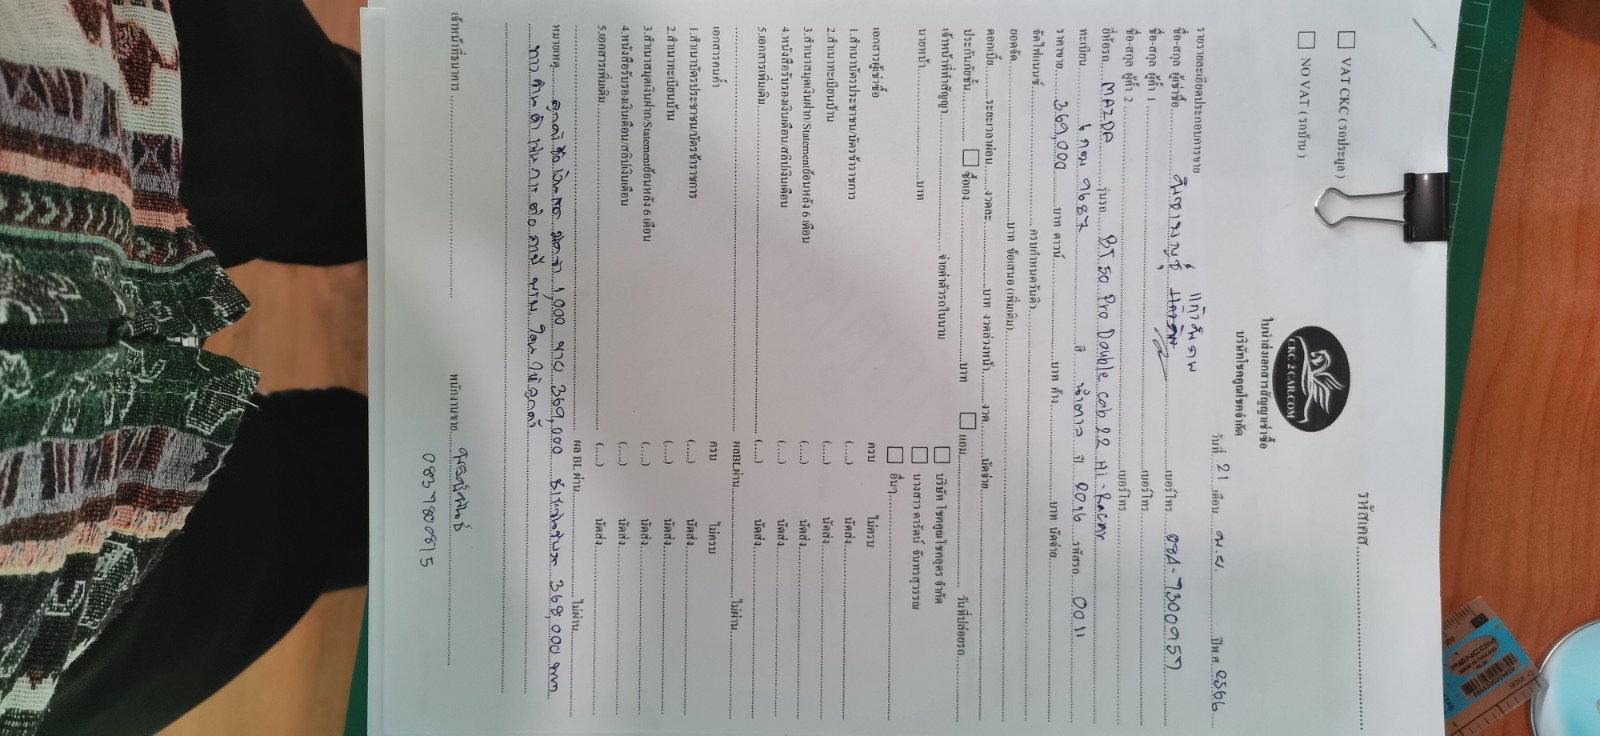 รหัสเคส
VAT CKC ( รถประมูล )
NO VAT ( รถบ้าน )
CKC 2 CAR.COM
ใบนำส่งเอกสารสัญญาเช่าซื้อ
บริษัทโชคคูณโชคจำกัด
วันที่ 21 เดือน พ.ย. ปีพ.ศ. 2566
รายรายละเอียดประกอบการขาย
ชื่อ-สกุล ผู้เช่าซื้อ เบอร์โทร 084-7300957
ชื่อ-สกุล ผู้ค้ำ 1 เบอร์โทร
ชื่อ-สกุล ผู้ค้ำ 2 เบอร์โทร
ยี่ห้อรถ MAZDA รุ่นรถ BT50 Pro Double cab 2.2 Hi-Racer
ทะเบียน 9687 สี น้ำตาล ปี 2016 รหัสรถ 0011
ราคาขาย 369,000 บาท ดาวน์ บาท ค้าง บาท นัดจ่าย
จัดไฟแนนซ์ ครบกำหนดคืนคิว
ยอดจัด บาท ข้อเสนอ (เพิ่มเติม)
ดอกเบี้ย ระยะเวลาผ่อน งวดละ บาท งวดล่วงหน้า งวด นัดจ่าย
ประกันภัยชั้น ซื้อเอง บาท แถม วันที่ปล่อยรถ
เจ้าหน้าที่ทำสัญญา จ่ายค่าตัวรถในนาม บริษัท โชคคูณโชคอุดร จำกัด
นายหน้า บาท นางสาว ดารัตน์ จันทรสุวรรณ
อื่นๆ
เอกสารผู้เช่าซื้อ ครบ ไม่ครบ
1.สำเนาบัตรประชาชน/บัตรข้าราชการ (....) นัดส่ง
2.สำเนาทะเบียนบ้าน (....) นัดส่ง
3.สำเนาสมุดเงินฝาก/Statementย้อนหลัง 6 เดือน (....) นัดส่ง
4.หนังสือรับรองเงินเดือน/สลิปเงินเดือน (....) นัดส่ง
5.เอกสารเพิ่มเติม (....) นัดส่ง
ผลBLผ่าน ไม่ผ่าน
เอกสารคนค้ำ ครบ ไม่ครบ
1.สำเนาบัตรประชาชน/บัตรข้าราชการ (....) นัดส่ง
2.สำเนาทะเบียนบ้าน (....) นัดส่ง
3.สำเนาสมุดเงินฝาก/Statementย้อนหลัง 6 เดือน (....) นัดส่ง
4.หนังสือรับรองเงินเดือน/สลิปเงินเดือน (....) นัดส่ง
5.เอกสารเพิ่มเติม (....) นัดส่ง
ผล BL ผ่าน ไม่ผ่าน
หมายเหตุ ลูกค้าซื้อเงินสด มัดจำ 1,000 ขาย 369,000 368,000 บาท
ให้ลูกค้า
เจ้าหน้าที่ธนาคาร พนักงานขาย
0837809815
PENCOM